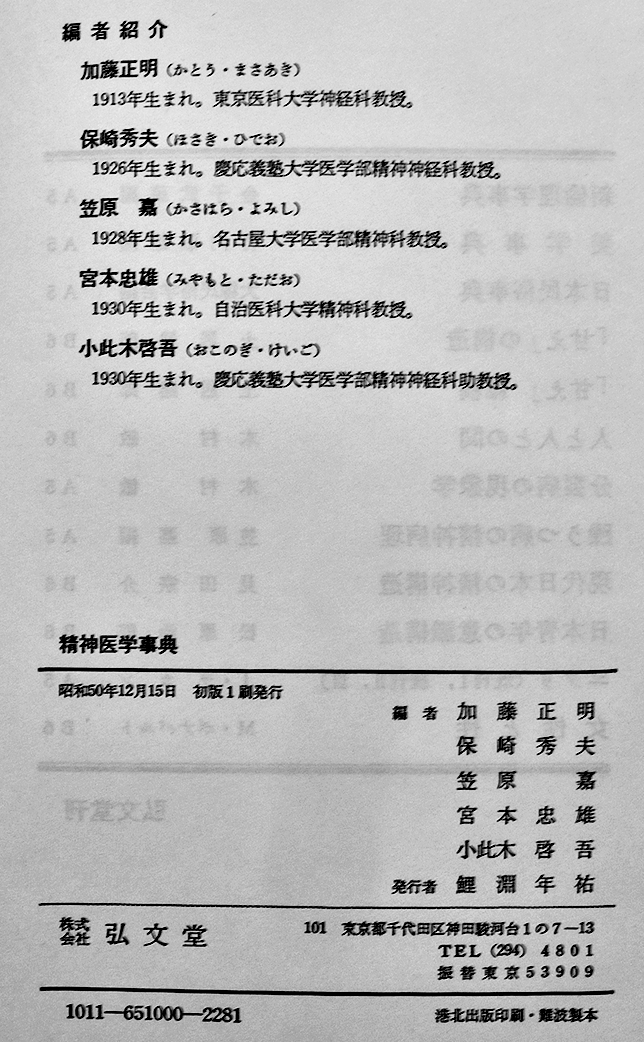 編者紹介
加藤正明（かとう・まさあき）
1913年生まれ。東京医科大学神経科教授。
保崎秀夫（ほさき・ひでお）
1926年生まれ。慶応義塾大学医学部精神神経科教授。
笠原　嘉（かさはら・よみし）
1928年生まれ。名古屋大学医学部精神科教授。
宮本忠雄（みやもと・ただお）
1930年生まれ。自治医科大学精神科教授。
小此木啓吾（おこのぎ・けいご）
1930年生まれ。慶応義塾大学医学部精神神経科助教授。
精神医学事典
昭和50年12月15日　初版１刷発行
編者　加藤正明
保崎秀夫
笠原　嘉
宮本忠雄
小此木啓吾
発行者　鯉淵年祐
株式会社　弘文堂
101　東京都千代田区神田駿河台１の７—13
TEL（294）4801
振替東京53909
1011—651000—2281
港北出版印刷・難波製本